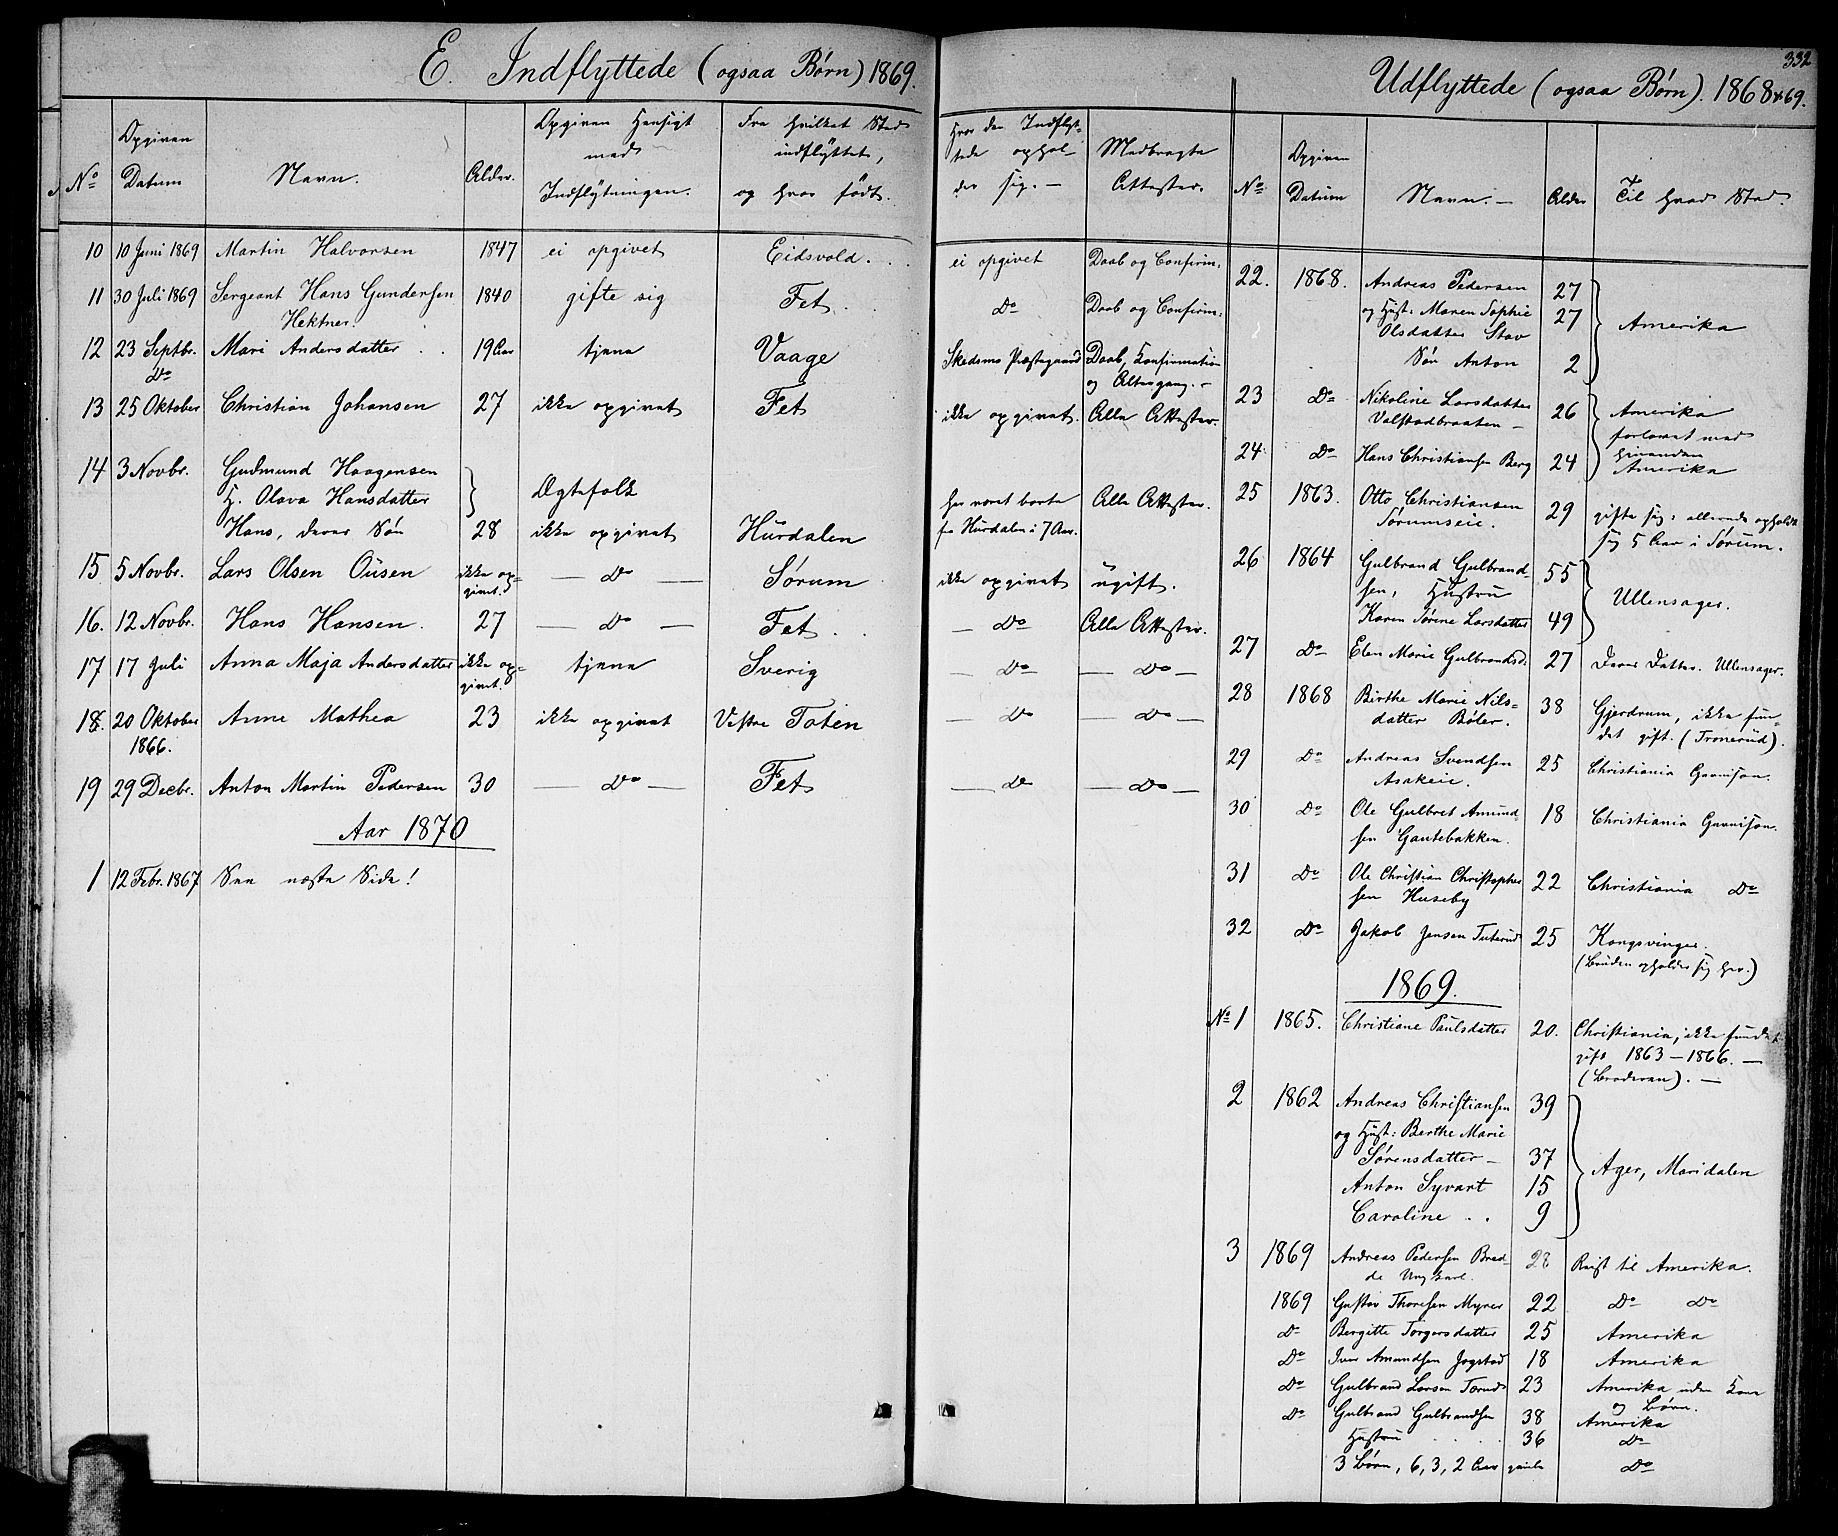 E. Indflyttede (ogsaa Børn) 1869.
No
Opgiven Datum
Navn.
Alder.
Opgiven Hensigt med Indflytningen.
Fra hvilket Sted indflyttet, og hvor født.
Hvor den Indflyttede opholder sig. –
Medbragte Attester.
10 10 Juni 1869 Martin Halvorsen 1847 ei opgivet Eidsvold. ei opgivet Daab og Confirm:
11 30 Juli 1869 Sergeant Hans Gundersen 1840 gifte sig Fet. Do Daab og Confirm:
Hektner.
12 23 Septbr. Mari Andersdatter 19 Aar tjene Vaage Skedsmo Præstegaard Daab, Konfirmation
Do og Altergang. –
13 25 Oktober Christian Johansen 27 ikke opgivet Fet ikke opgivet. Alle Attester.
14 3 Novbr. Gudmund Haagensen
H. Olava Hansdatter } Ægtefolk har været borte Alle Attester.
Hans, deres Søn 28 ikke opgivet Hurdalen fra Hurdalen i 7 Aar.
15 5 Novbr. Lars Olsen Ousen ikke opgivet. – Do – Sørum ikke opgivet ugift.
16. 12 Novbr. Hans Hansen. 27 – Do – Fet. – Do Alle Attester.
17 17 Juli Anna Maja Andersdatter ikke opgivet. tjene Sverig – Do – Do
18. 20 Oktober Anne Mathea 23 ikke opgivet Vestre Toten – Do – Do –
1866.
19 29 Decbr. Anton Martin Pedersen 30 – Do – Fet – Do – Do –
Aar 1870
1 12 Febr. 1867 See næste Side!
332
Udflyttede (ogsaa Børn). 1868 & 69.
No.
Opgiven Datum
Navn. –
Alder
Til hvad Sted.
22. 1868. Andreas Pedersen 27
og Hust: Maren Sophie 27
Olsdatter Stav } Amerika
Søn Anton 2
23 Do Nikoline Larsdatter 26 Amerika
Valstadbraaten – forlovet med
hinanden
24 Do Hans Christiansen Berg 24 Amerika
25 1863. Otto Christiansen 29 gifte sig; allerede opholdt
Sørumseie. sig 5 Aar i Sørum.
26 1864 Gulbrand Gulbrand- 55
sen, Hustru } Ullensager.
Karen Sørine Larsdatter 49
27 Do Elen Marie Gulbrandsd: 27 deres Datter. Ullensager.
28 1868 Birthe Marie Nils- 38 Gjerdrum, ikke fun-
datter Bøler. det gift. (Tronerud).
29 Do Andreas Svendsen 25 Christiania Garnison.
Asakeie.
30 Do Ole Gulbret Amund- 18 Christiania Garnison.
sen Gautebakken.
31 Do Ole Christian Christopher- 22 Christiania Do
sen Huseby
32 Do Jakob Jensen Tuterud 25 Kongsvinger.
(Bruden opholder sig her.)
1869.
No 1 1865. Christiane Paulsdatter 20. Christiania, ikke fundet
gift 1863–1866. –
2 1862 Andreas Christiansen 39
og Hust: Berthe Marie
Sørensdatter – 37
Anton Syvart 15 } Ager, Maridalen
Caroline 9
3 1869 Andreas Pedersen Bred- 28 Reist til Amerika.
de Ungkarl.
1869 Gustav Thoresen Myrer 22 Do Do
Do Bergitte Torgersdatter 25 Amerika
Do Iver Amundsen Jogstad 18 Amerika
Do Gulbrand Larsen Torud 23 Amerika uden Kone
og Børn.
Do Gulbrand Gulbrandsen 38 Amerika
Hustru 36 Do
3 Børn, 6, 3, 2 Aar gamle Do